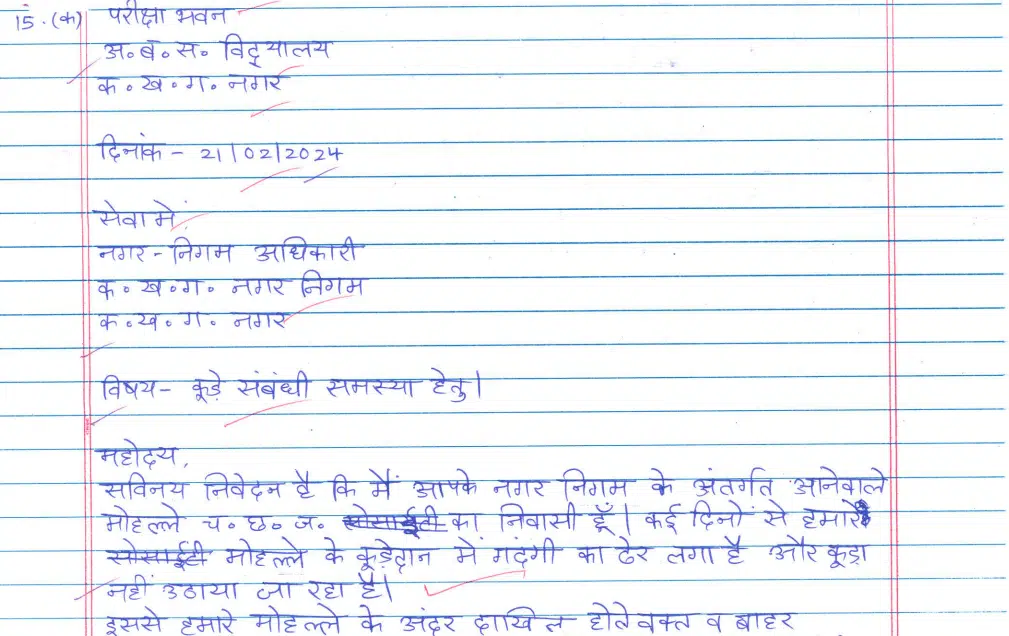 15. (क) परीक्षा भवन
अ॰ब॰स॰ विद्यालय
क॰ख॰ग॰ नगर
दिनांक - 21/02/2024
सेवा में,
नगर-निगम अधिकारी
क॰ख॰ग॰ नगर निगम
क॰ख॰ग॰ नगर
विषय- कूड़े संबंधी समस्या हेतु।
महोदय,
सविनय निवेदन है कि मैं आपके नगर निगम के अंतर्गत आनेवाले
मोहल्ले च॰छ॰ज॰ सोसाईटी का निवासी हूँ। कई दिनों से हमारे
सोसाईटी मोहल्ले के कूड़ेदान में गदंगी का ढेर लगा है और कूड़ा
नहीं उठाया जा रहा है।
इससे हमारे मोहल्ले के अंदर दाखिल होते वक्त व बाहर